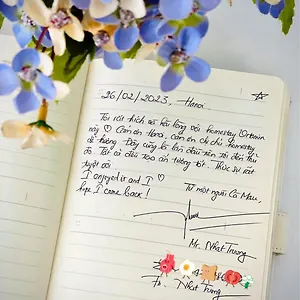 26/02/2023, Hanoi
Tôi rất thích và hài lòng với homestay
này ♡ Cảm ơn Hana, cảm ơn chị chủ homestay
dễ thương. Đây cũng là lần đầu tiên tôi đến Thủ
đô. Tất cả đều tạo ấn tượng tốt. Thực sự rất
tuyệt vời
I enjoyed it and I ♡
hope I come back!
Từ một người Cà Mau.
Mr. Nhat Truong
Nhat Truong